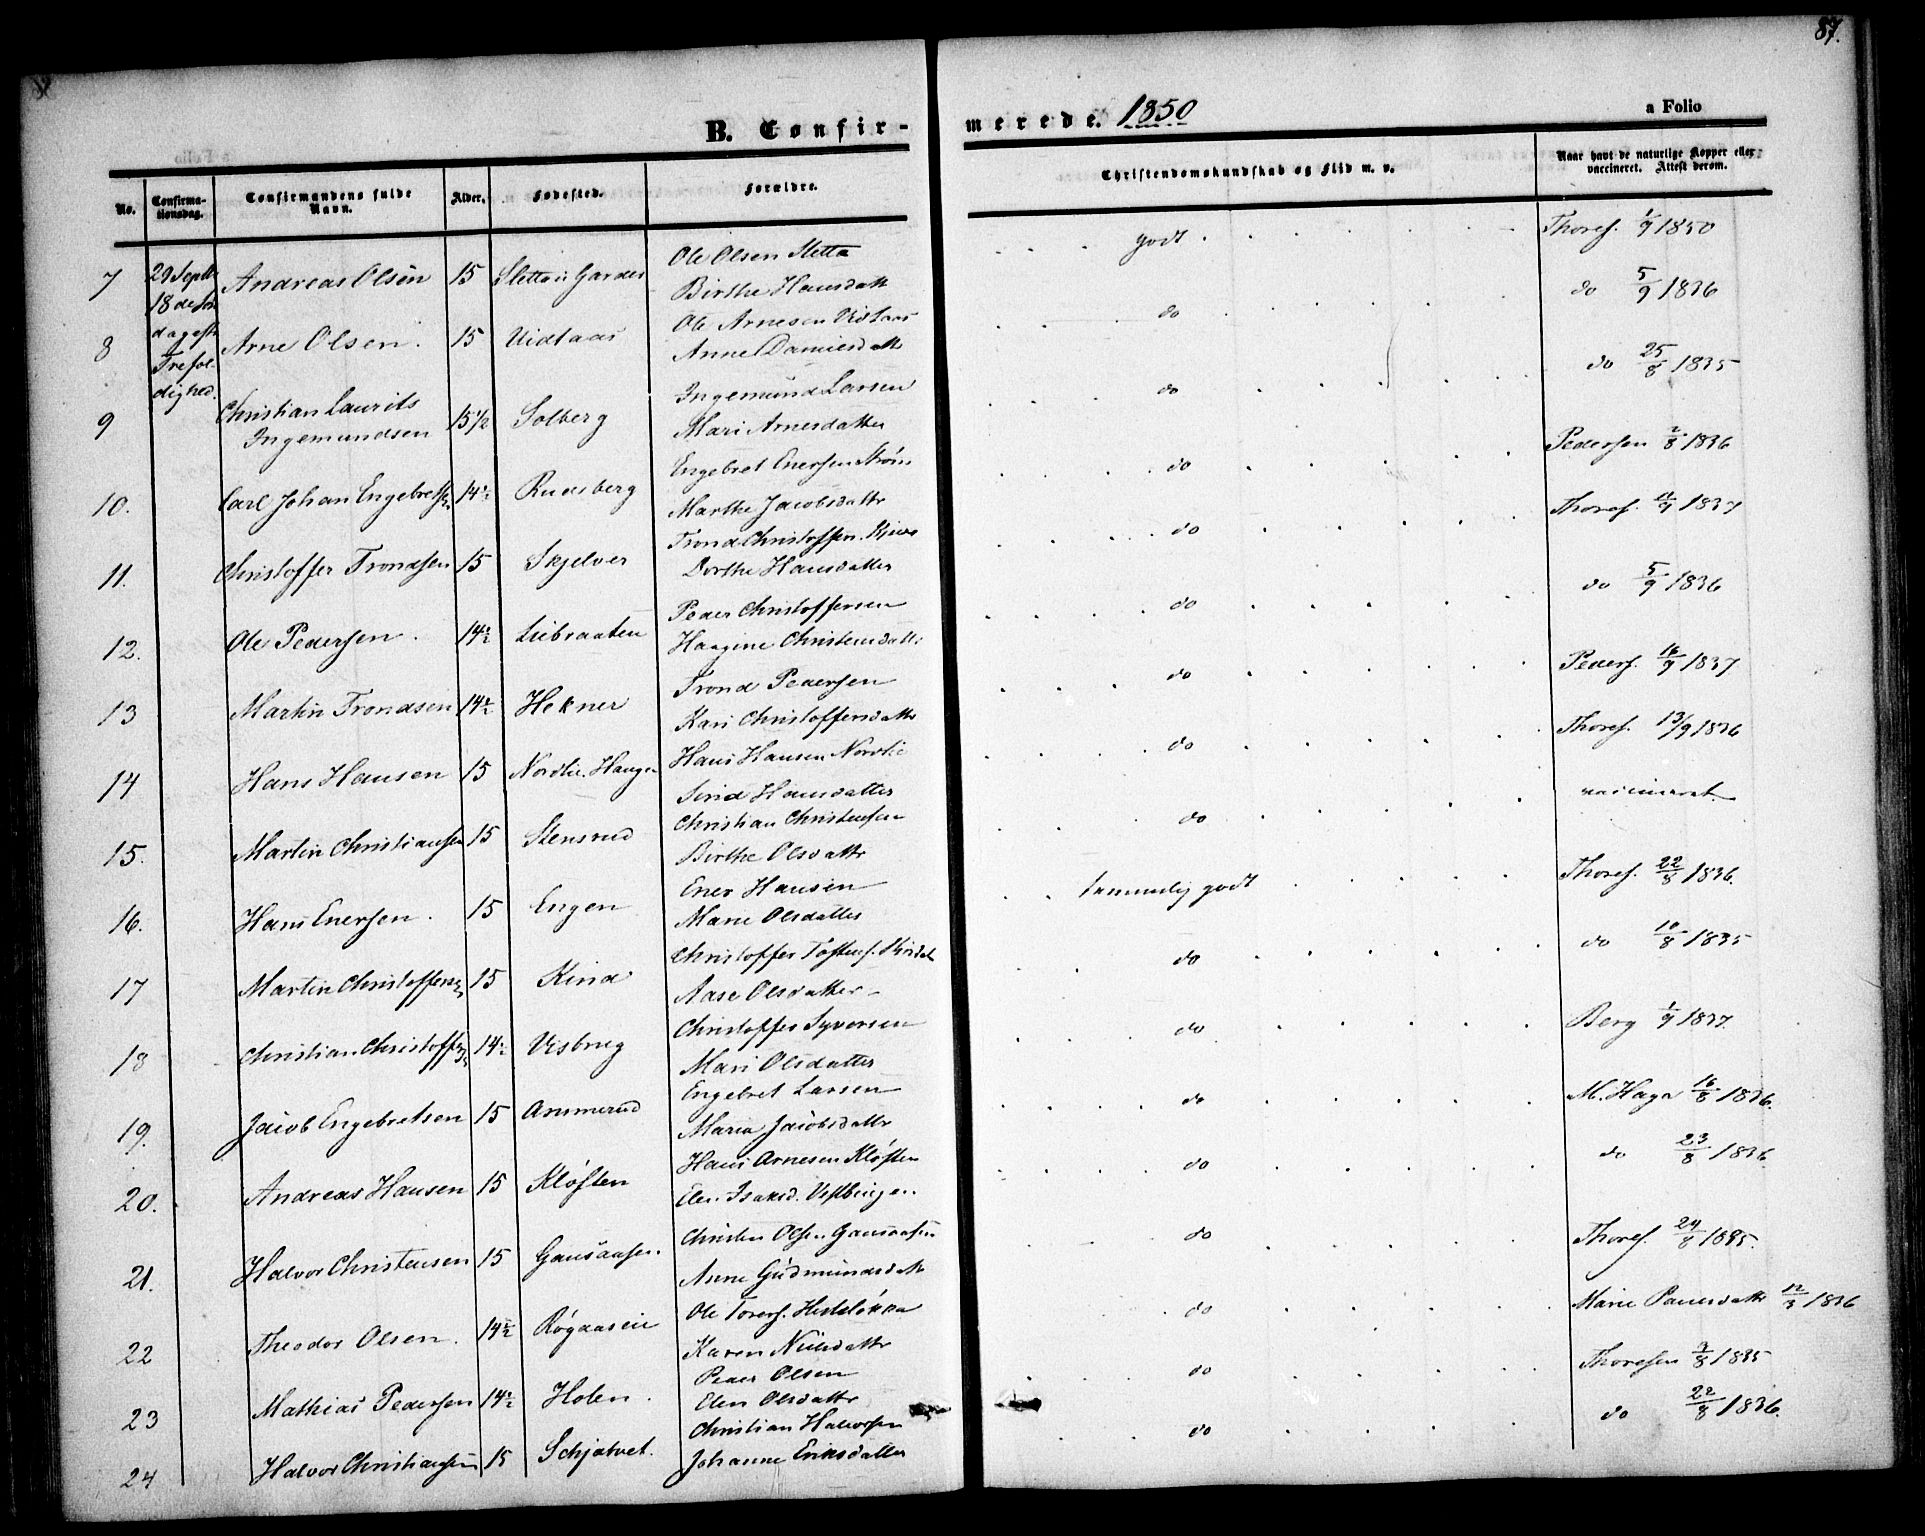 87.
B. Confirmerede. 1850
a Folio
No. Confirmationsdag. Confirmandens fulde Navn. Alder. Fødested. Forældre. Christendomskundskab og Flid m. v. Naar havt de naturlige Kopper eller vaccineret. Attest derom.
29 Septbr 18de Søndag efter Trefoldighed.
7 Andreas Olsen 15 Sletta i Garder Ole Olsen Sletta Birthe Hansdattr godt Thores. 1/9 1850
8 Arne Olsen. 15 Vidlaas Ole Arnesen Vidlaas Anne Danielsdattr do do 5/9 1836
9 Christian Laurits Ingemundsen 15 1/2 Solberg Ingemund Larsen Mari Arnesdatter do do 25/8 1835
10. Carl Johan Engebretsen 14 1/2 Rudsberg Engebret Enersen Strøm Marthe Jacobsdattr do Pedersen 2/8 1836
11. Christoffer Trondsen 15 Skjelver Trond Christoffers. Dorthe Hansdatter do Thores. 1837
12. Ole Pedersen. 14 1/2 Liebraaten Peder Christoffersen Haagine Christensdattr do do 5/9 1836
13 Martin Trondsen 14 1/2 Hekner Trond Pedersen Kari Christoffersdattr do Peders. 16/9 1837
14 Hans Hansen 15 Nordlie. Haugen Hans Hansen Nordlie Sirid Hansdatter do Thores. 13/9 1836
15. Martin Christiansen 15 Stensrud Christian Christensen Birthe Olsdattr do vaccineret
16. Hans Enersen. 15 Engen Ener Hansen Marie Olsdatter temmelig godt Thores. 22/8 1836.
17 Martin Christoffersen 15 Kind Christoffer Tostens. Aase Olsdatter do do 10/8 1835
18 Christian Christoffersen 14 1/2 Vesbrug Christoffer Syversen Mari Olsdatter do Berg 1/9 1837.
19. Jacob Engebretsen 15 Ammerud Engebret Larsen Maria Jacobsdattr do M. Haga 16/8 1836.
20. Andreas Hansen 15 Kløften Hans Arnesen Kløften Elen Isaksd. Vestbingen do do 23/8 1836
21. Halvor Christensen 15 Gausaasen. Christen Olsen Gausaasen Anne Gudmundsdattr do Thores. 24/8 1835.
22 Theodor Olsen. 14 1/2 Røgaasen Ole Torers. Karen Nilsdattr do Marie Paulsdattr 12/3 1836
23 Mathias Pedersen 14 1/2 Holen. Peder Olsen Elen Olsdattr do Thoresen 9/8 1835
24 Halvor Christiansen 15 Schjatvet. Christian Halvorsen Johanne Eriksdatter do do 22/8 1836.